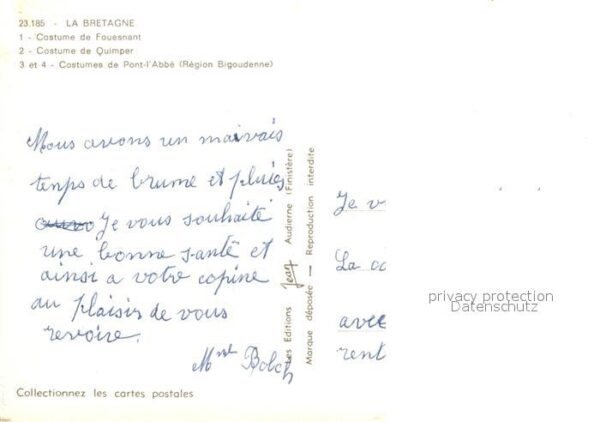 23.185 - LA BRETAGNE
1 - Costume de Fouesnant
2 - Costume de Quimper
3 et 4 - Costumes de Pont-l'Abbé (Région Bigoudenne)
Nous avons un maivais
temps de brume et pluies
Je vous souhaite
une bonne santé et
ainsi a votre copine
au plaisir de vous
revoire.
Mme
Les Editions Jean Audierne (Finistère)
Marque déposée — Reproduction interdite
Je v
La
avec
rent
privacy protection
Datenschutz
Collectionnez les cartes postales